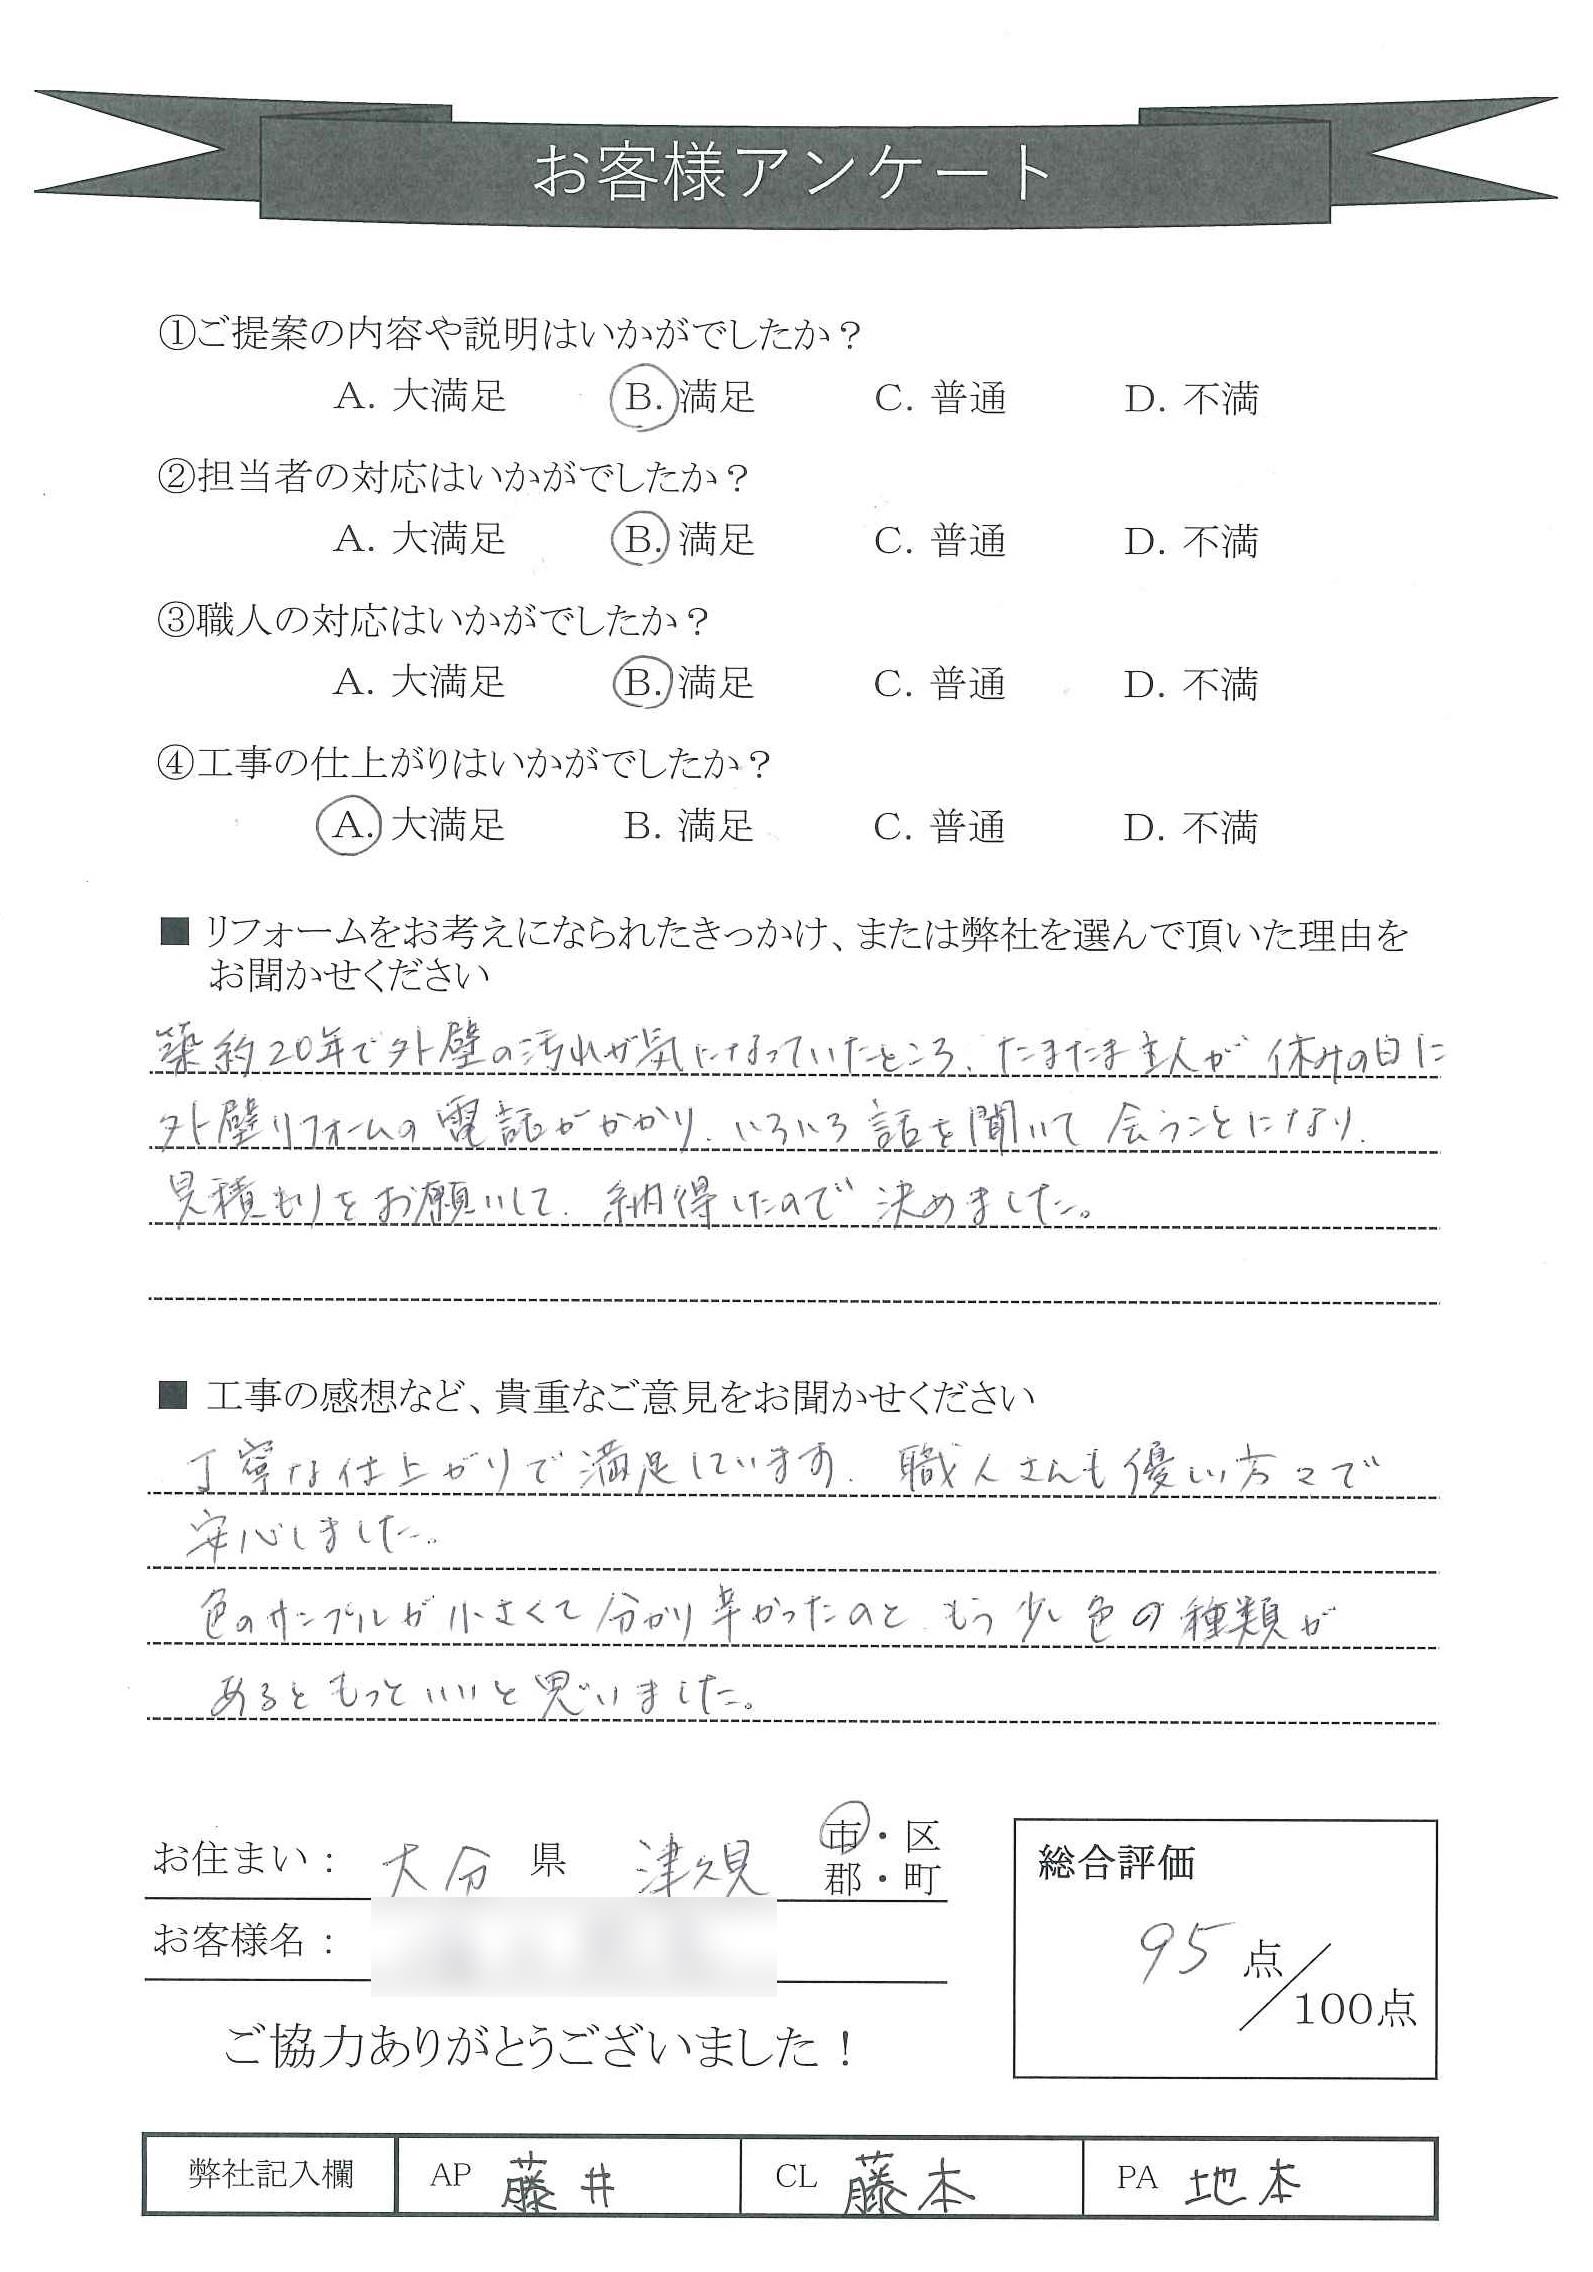 お客様アンケート
①ご提案の内容や説明はいかがでしたか？
A. 大満足 B. 満足 C. 普通 D. 不満
②担当者の対応はいかがでしたか？
A. 大満足 B. 満足 C. 普通 D. 不満
③職人の対応はいかがでしたか？
A. 大満足 B. 満足 C. 普通 D. 不満
④工事の仕上がりはいかがでしたか？
A. 大満足 B. 満足 C. 普通 D. 不満
■ リフォームをお考えになられたきっかけ、または弊社を選んで頂いた理由を
お聞かせください
築約20年で外壁の汚れが気になっていたところ、たまたま主人が休みの日に
外壁リフォームの電話がかかり、いろいろ話を聞いて会うことになり、
見積もりをお願いして、納得したので決めました。
■ 工事の感想など、貴重なご意見をお聞かせください
丁寧な仕上がりで満足しています。職人さんも優しい方々で
安心しました。
色のサンプルが小さくて分かり辛かったのと、もう少し色の種類が
あるともっといいと思いました。
お住まい： 大分 県 津久見 市・区
郡・町
お客様名：
総合評価
95 点／100点
ご協力ありがとうございました！
弊社記入欄 AP 藤井 CL 藤本 PA 地本